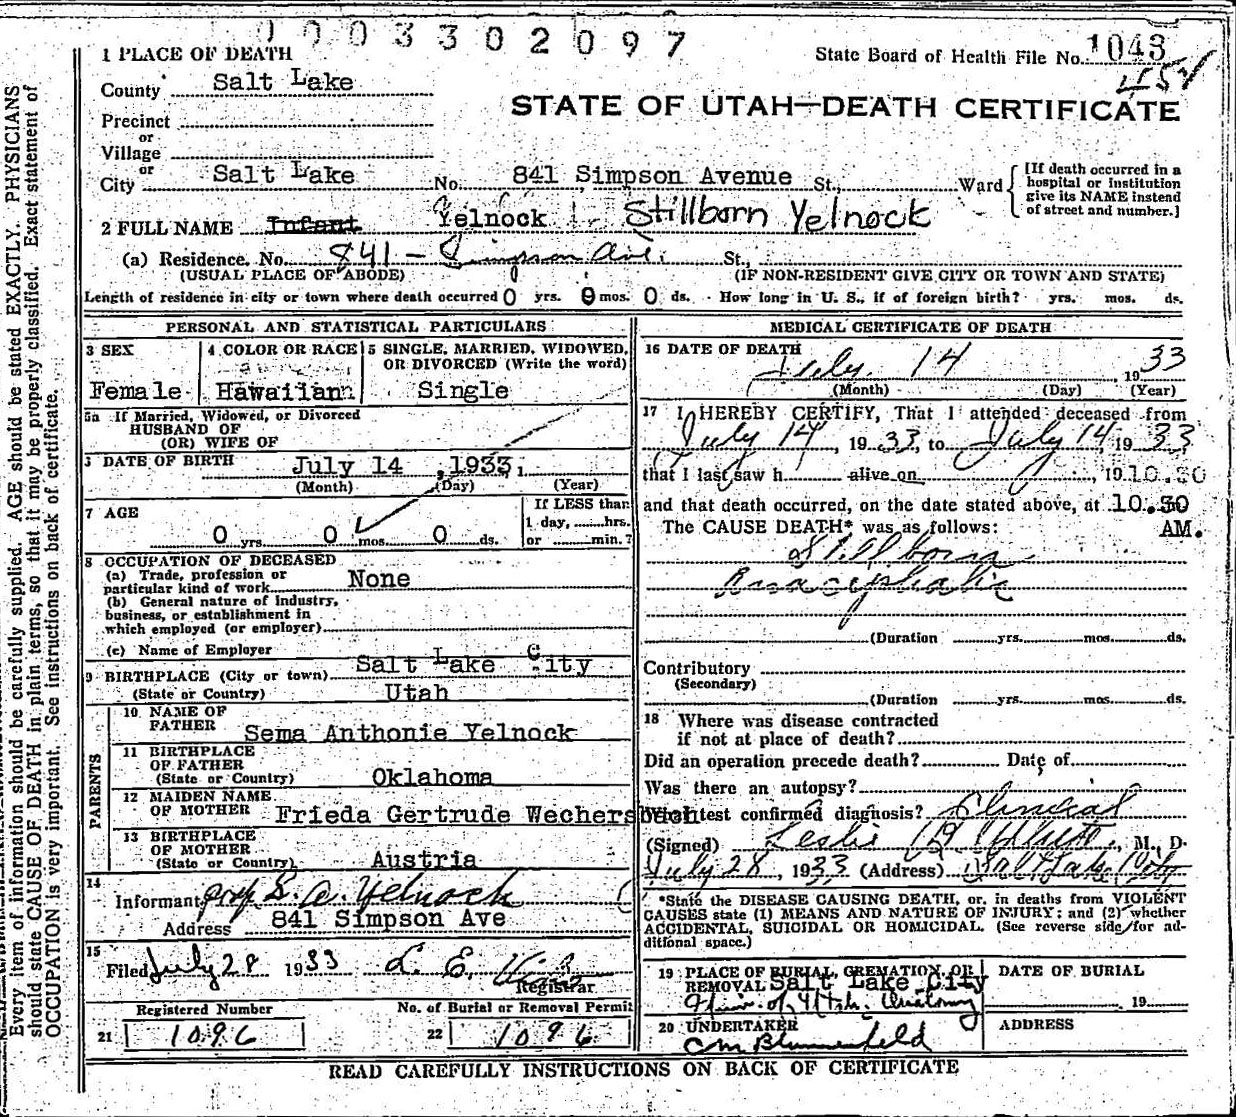 0003302097
State Board of Health File No. 1043
454
1 PLACE OF DEATH
County Salt Lake
STATE OF UTAH—DEATH CERTIFICATE
Precinct
or
Village
or
City Salt Lake No. 841 Simpson Avenue St., Ward
[If death occurred in a hospital or institution give its NAME instead of street and number.]
2 FULL NAME Infant Yelnock Stillborn Yelnock
(a) Residence. No. 841 - Simpson Ave. St.,
(USUAL PLACE OF ABODE) (IF NON-RESIDENT GIVE CITY OR TOWN AND STATE)
Length of residence in city or town where death occurred 0 yrs. 0 mos. 0 ds. How long in U. S., if of foreign birth? yrs. mos. ds.
PERSONAL AND STATISTICAL PARTICULARS
3 SEX
Female
4 COLOR OR RACE
Hawaiian
5 SINGLE, MARRIED, WIDOWED, OR DIVORCED (Write the word)
Single
5a If Married, Widowed, or Divorced
HUSBAND OF
(OR) WIFE OF
DATE OF BIRTH July 14, 1933
(Month) (Day) (Year)
7 AGE
0 yrs. 0 mos. 0 ds.
If LESS than
1 day, hrs.
or min.?
8 OCCUPATION OF DECEASED
(a) Trade, profession or
particular kind of work None
(b) General nature of industry,
business, or establishment in
which employed (or employer)
(c) Name of Employer
9 BIRTHPLACE (City or town) Salt Lake City
(State or Country) Utah
PARENTS
10 NAME OF
FATHER Sema Anthonie Yelnock
11 BIRTHPLACE
OF FATHER
(State or Country) Oklahoma
12 MAIDEN NAME
OF MOTHER Frieda Gertrude
13 BIRTHPLACE
OF MOTHER
(State or Country) Austria
14
Informant S. A. Yelnock
Address 841 Simpson Ave
15
Filed July 28 1933 L. E.
Registrar
Registered Number
21 1096
No. of Burial or Removal Permit
22 1096
MEDICAL CERTIFICATE OF DEATH
16 DATE OF DEATH
July 14 1933
(Month) (Day) (Year)
17 I HEREBY CERTIFY, That I attended deceased from
July 14, 1933, to July 14, 1933
that I last saw h alive on , 19 10.30
and that death occurred, on the date stated above, at 10.30
AM.
The CAUSE DEATH* was as follows:
Stillborn
Anacephalic
(Duration yrs. mos. ds.
Contributory
(Secondary)
(Duration yrs. mos. ds.
18 Where was disease contracted
if not at place of death?
Did an operation precede death? Date of
Was there an autopsy?
What test confirmed diagnosis? Clinical
(Signed) Leslie , M. D.
July 28, 1933 (Address) Salt Lake City
*State the DISEASE CAUSING DEATH, or, in deaths from VIOLENT
CAUSES state (1) MEANS AND NATURE OF INJURY; and (2) whether
ACCIDENTAL, SUICIDAL OR HOMICIDAL. (See reverse side for ad-
ditional space.)
19 PLACE OF BURIAL, CREMATION, OR
REMOVAL Salt Lake City
Univ. of Utah. Anatomy
DATE OF BURIAL
19
20 UNDERTAKER
CM Blumenfeld
ADDRESS
READ CAREFULLY INSTRUCTIONS ON BACK OF CERTIFICATE
Every item of information should be carefully supplied. AGE should be stated EXACTLY. PHYSICIANS
should state CAUSE OF DEATH in plain terms, so that it may be properly classified. Exact statement of
OCCUPATION is very important. See instructions on back of certificate.